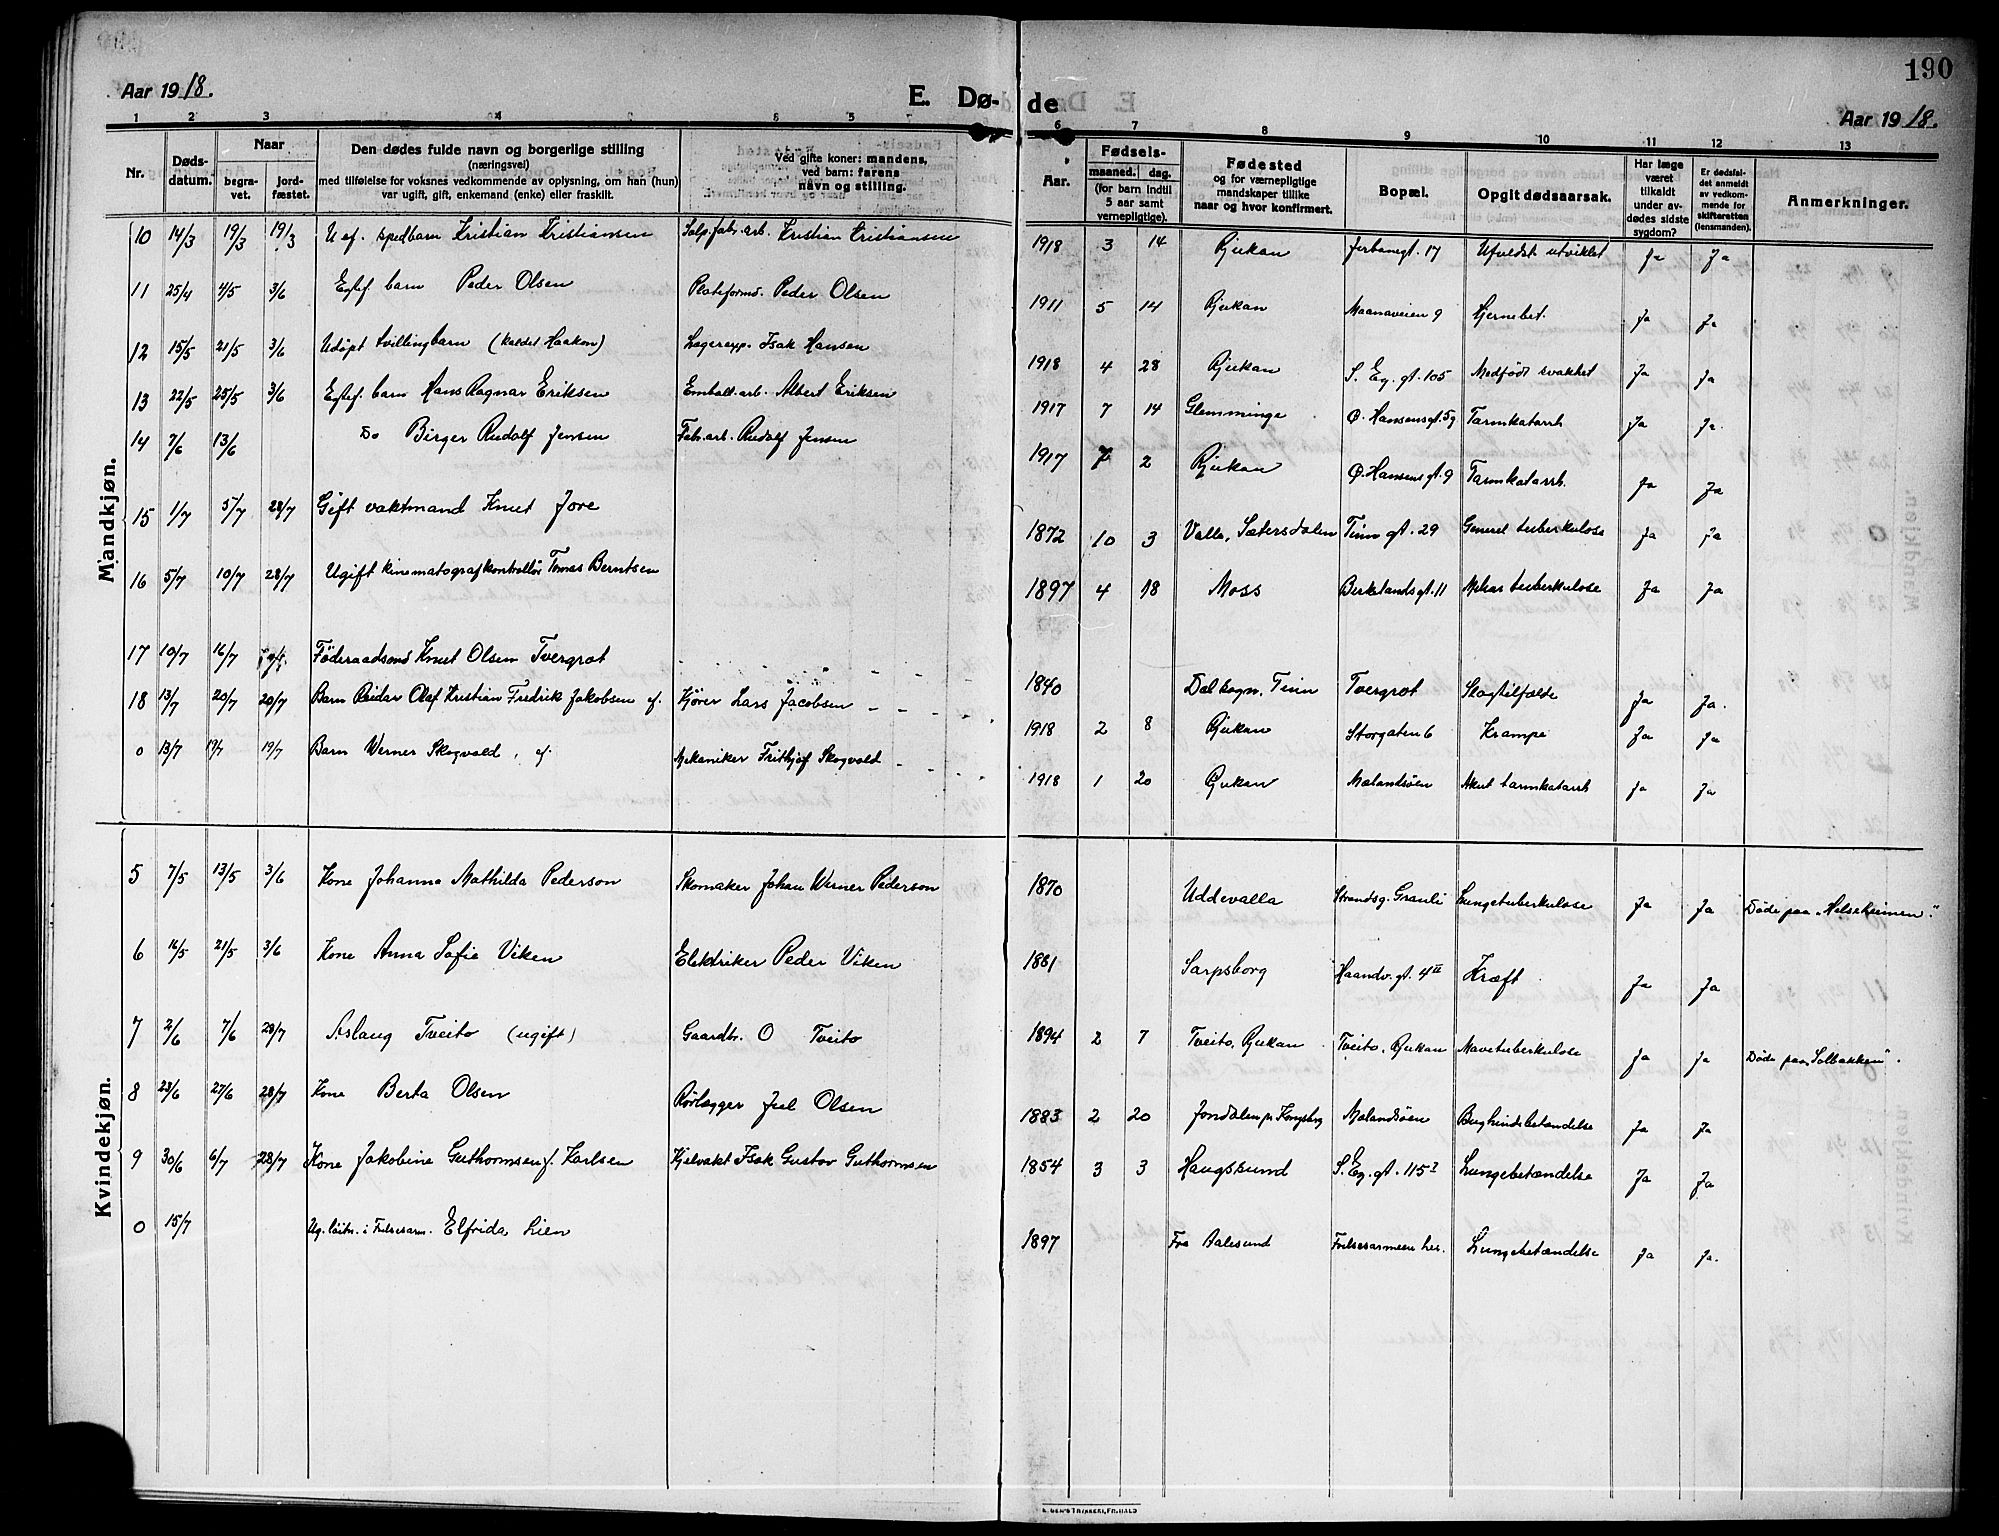 190
Aar 1918.
E. Dø- de
Aar 1918.
1 2 3 4 5 6 7 8 9 10 11 12 13
Nr. Døds-datum. Naar begra-vet. jord-fæstet. Den dødes fulde navn og borgerlige stilling (næringsvei) med tilføielse for voksnes vedkommende av oplysning, om han (hun) var ugift, gift, enkemand (enke) eller fraskilt. Ved gifte koner: mandens, ved barn: farens navn og stilling. Aar. Fødsels- maaned. dag. (for barn indtil 5 aar samt vernepligtige). Fødested og for værnepligtige mandskaper tillike naar og hvor konfirmert. Bopæl. Opgit dødsaarsak. Har læge været tilkaldt under av-dødes sidste sygdom? Er dødsfal-det anmeldt av vedkom-mende for skifteretten (lensmanden). Anmerkninger.
Mandkjøn.
10 14/3 19/3 19/3 U ef. spedbarn Kristian Kristiansen Salp.fabr.arb. Kristian Kristiansen 1918 3 14 Rjukan Jerbanegt. 17 Ufuldst. utviklet Ja Ja
11 25/4 4/5 3/6 Egtef barn Peder Olsen Plateforms. Peder Olsen 1911 5 14 Rjukan Maanaveien 9 Hjernebet. Ja Ja
12 15/5 21/5 3/6 Udøpt tvillingbarn (kaldet Haakon) Lagerexp. Isak Hansen 1918 4 28 Rjukan S. Eg. gt. 105 Medfødt svakhet Ja Ja
13 22/5 25/5 3/6 Egtef. barn Hans Ragnar Eriksen Emball.arb. Albert Eriksen 1917 7 14 Glemminge O. Hansensgt. 59 Tarmkatarrh Ja Ja.
14 7/6 13/6 Do Birger Rudolf Jensen Fabr.arb. Rudolf Jensen 1917 7 2 Rjukan O. Hansens gt. 9 Tarmkatarrh. Ja Ja
15 1/7 5/7 28/7 Gift vaktmand Knut Jore 1872 10 3 Valle, Sætersdalen Tinn gt. 29 Generel tuberkulose Ja Ja
16 5/7 10/7 28/7 Ugift kinematografkontrollör Tomas Berntsen 1897 4 18 Moss Birkelands gt. 11 Miliar tuberkulose Ja Ja
17 10/7 16/7 Föderaadsmd Knut Olsen Tvergrot 1840 Dal sogn, Tinn Tvergrot Slagtilfælde Ja Ja.
18 13/7 20/7 20/7 Barn Reidar Olaf Kristian Fredrik Jakobsen ef. Kjörer Lars Jacobsen 1918 2 8 Rjukan Storgaten 6 Krampe Ja Ja
0 13/7 19/7 19/7 Barn Werner Skogvold, ef. Mekaniker Frithjof Skogvold 1918 1 20 Rjukan Mælandsöen Akut tarmkatarrh Ja Ja
Kvindekjøn.
5 7/5 13/5 3/6 Kone Johanna Mathilda Pederson Skomaker Johan Werner Pederson 1870 Uddevalla Strandsg. Grauli Lungetuberkulose Ja Ja Döde paa "Helseheimen".
6 16/5 21/5 3/6 Kone Anna Sofie Viken Elektriker Peder Viken 1881 Sarpsborg Haandv. gt. 4 II Kræft Ja Ja
7 2/6 7/6 28/7 Aslaug Tveito (ugift) Gaardbr. O Tveito 1894 2 7 Tveito, Rjukan Tveito, Rjukan Mavetuberkulose Ja Ja Døde paa "Solbakken".
8 23/6 27/6 28/7 Kone Berta Olsen Rörlægger Juel Olsen 1883 2 20 Jondalen pr Kongsberg Mælandsöen Bughindebetændelse Ja Ja
9 30/6 6/7 28/7 Kone Jakobine Guthormsen f. Karlsen Kjelvakt Isak Gustav Guthormsen 1854 3 3 Haugesund S. Eg. gt. 115 I Lungebetændelse Ja Ja
0 15/7 Ug. löitn. i Frelsesarm. Elfrida Lien 1897 Fra Aalesund Frelsesarmeen her. Lungebetændelse Ja Ja.